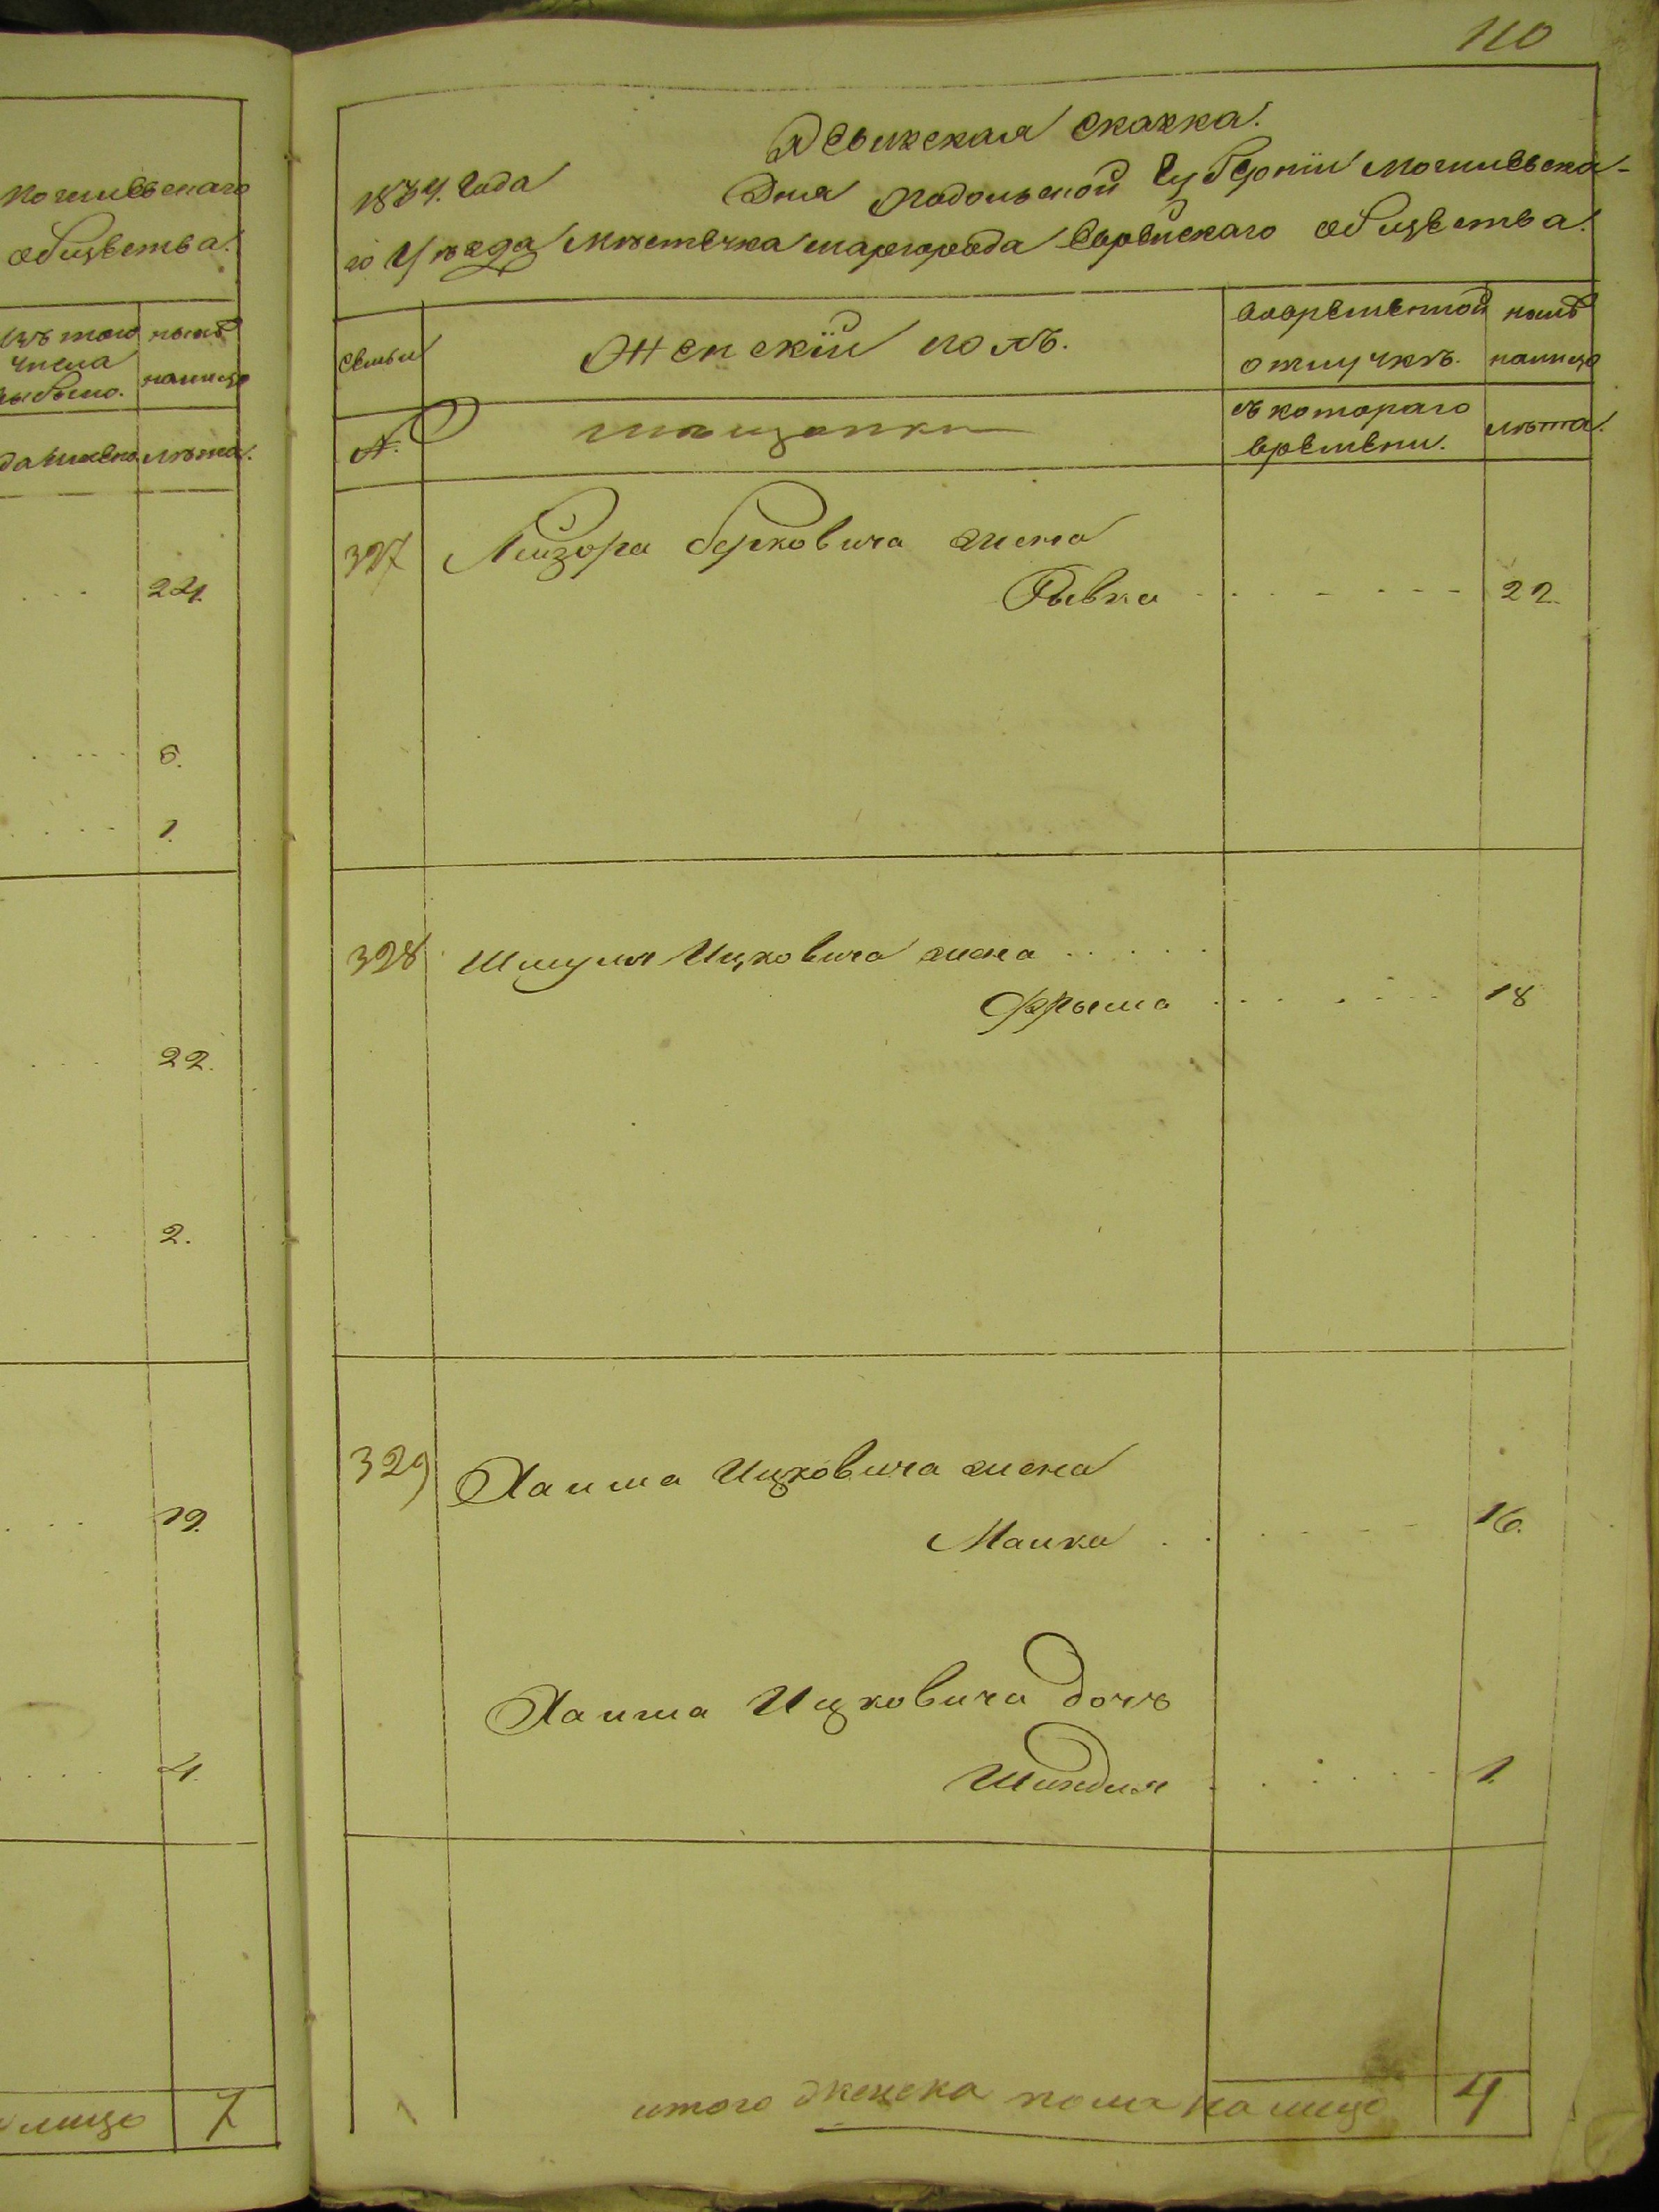 110
Ревизская сказка.
1834. Года Дня Подольской Губерніи Могилевска-
го Уѣзда Мѣстечка Шаргорода Еврейскаго общества.
Семьи
Женскій полъ.
вовременной
отлучкѣ.
нынѣ
налицо
№.
мѣщанки
съ котораго
времени.
лѣта.
327 Лейзора Берковича жена
Рывка 22.
328 Шмуля Ицковича жена
Фрыма 18
329 Хаима Ицковича жена
Малка 16.
Хаима Ицковича дочь
Шиндля 1.
итого женска пола на лицо 4
Могилевскаго
общества.
изъ того
числа
выбыло.
нынѣ
налицо
лѣта.
24.
1.
22.
2.
19.
4.
лицо 7